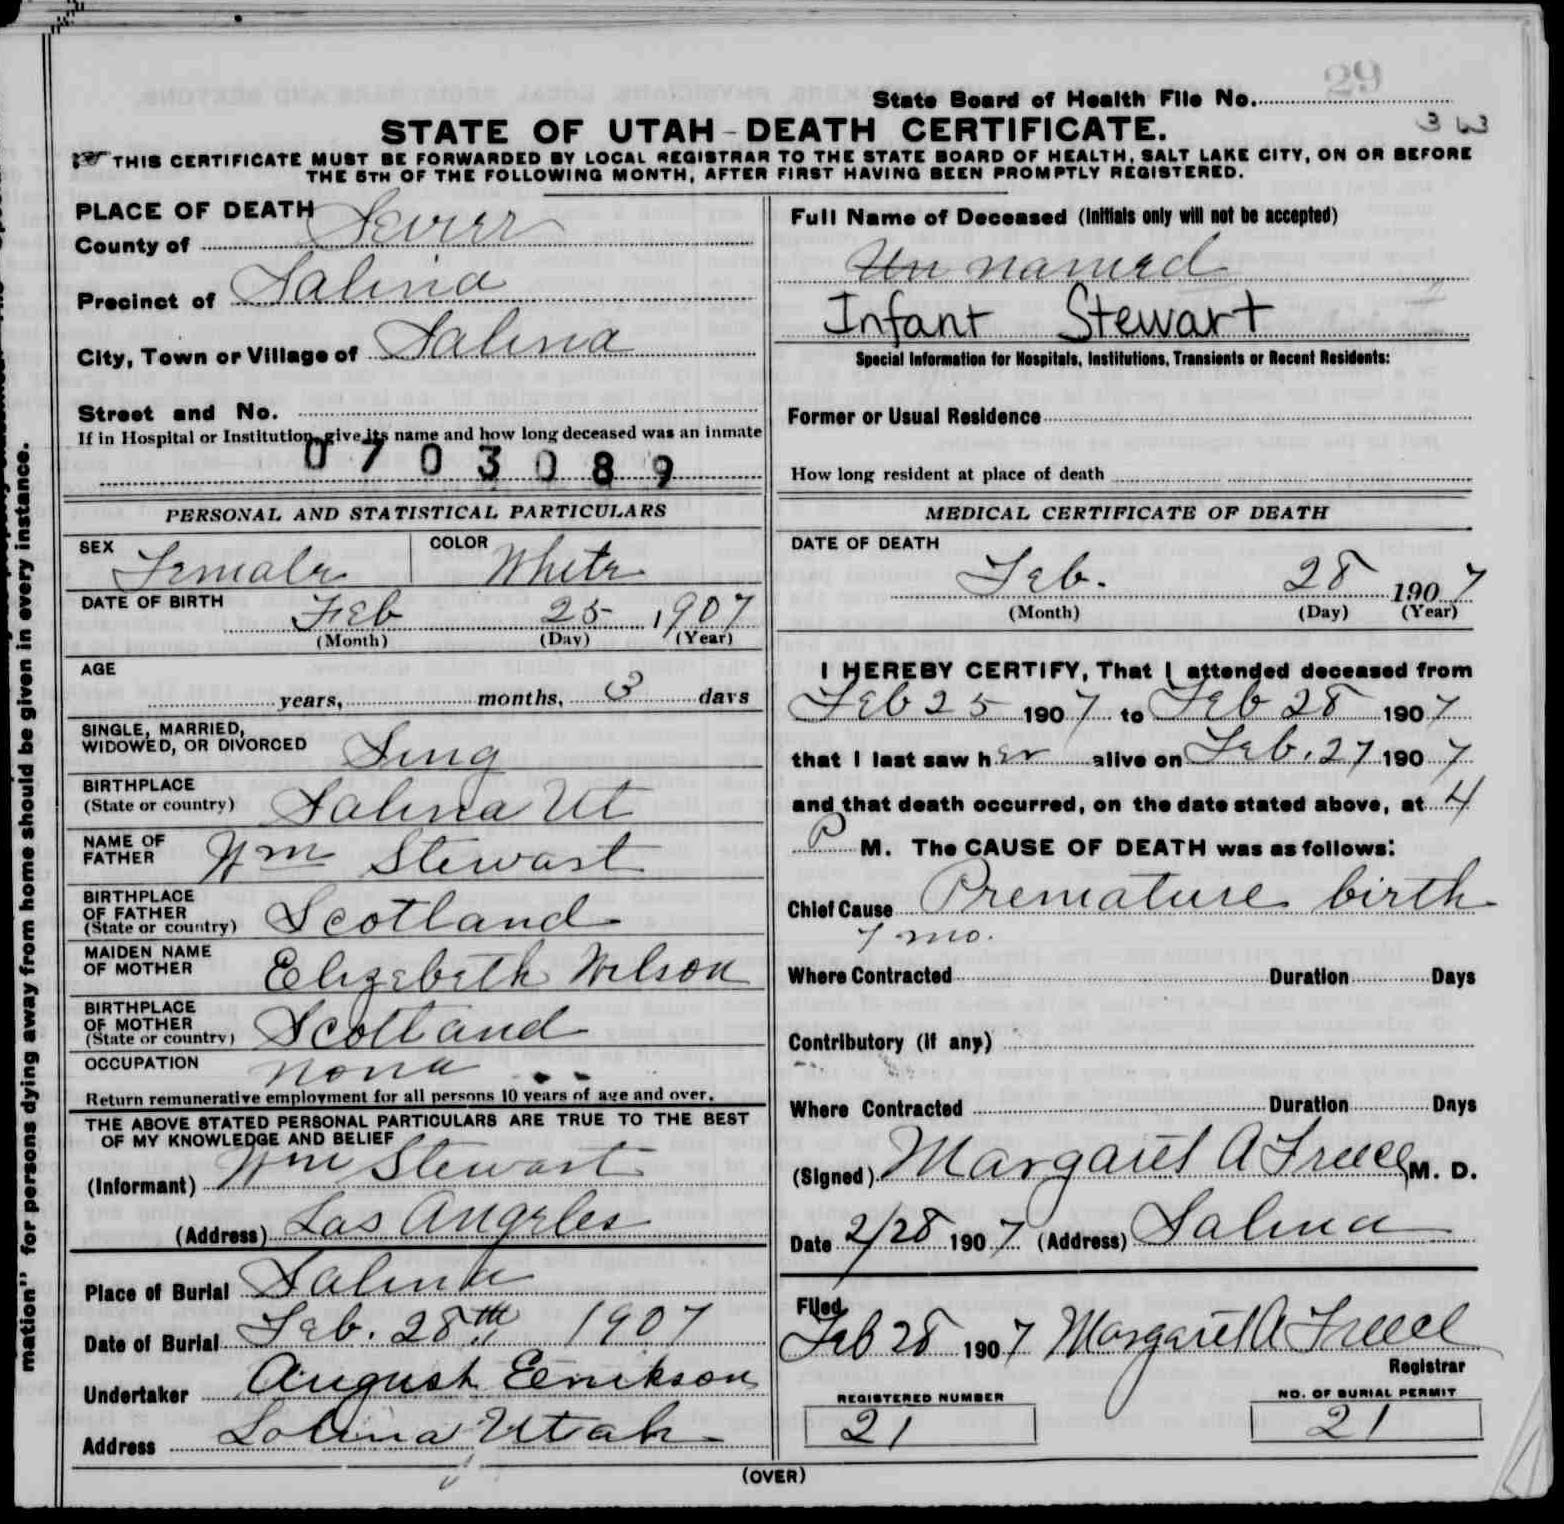 29
State Board of Health File No.
STATE OF UTAH - DEATH CERTIFICATE.
THIS CERTIFICATE MUST BE FORWARDED BY LOCAL REGISTRAR TO THE STATE BOARD OF HEALTH, SALT LAKE CITY, ON OR BEFORE
THE 5TH OF THE FOLLOWING MONTH, AFTER FIRST HAVING BEEN PROMPTLY REGISTERED.
PLACE OF DEATH
County of Sevier
Precinct of Salina
City, Town or Village of Salina
Street and No.
If in Hospital or Institution, give its name and how long deceased was an inmate
0703089
PERSONAL AND STATISTICAL PARTICULARS
SEX Female COLOR White
DATE OF BIRTH Feb 25 1907
(Month) (Day) (Year)
AGE
years, months, 3 days
SINGLE, MARRIED,
WIDOWED, OR DIVORCED Sing
BIRTHPLACE
(State or country) Salina Ut
NAME OF
FATHER Wm Stewart
BIRTHPLACE
OF FATHER
(State or country) Scotland
MAIDEN NAME
OF MOTHER Elizebeth Wilson
BIRTHPLACE
OF MOTHER
(State or country) Scotland
OCCUPATION None
Return remunerative employment for all persons 10 years of age and over.
THE ABOVE STATED PERSONAL PARTICULARS ARE TRUE TO THE BEST
OF MY KNOWLEDGE AND BELIEF
(Informant) Wm Stewart
(Address) Los Angeles
Place of Burial Salina
Date of Burial Feb. 28th 1907
Undertaker August
Address Salina Utah
Full Name of Deceased (Initials only will not be accepted)
Un named
Infant Stewart
Special Information for Hospitals, Institutions, Transients or Recent Residents:
Former or Usual Residence
How long resident at place of death
MEDICAL CERTIFICATE OF DEATH
DATE OF DEATH
Feb. 28 1907
(Month) (Day) (Year)
I HEREBY CERTIFY, That I attended deceased from
Feb 25 1907 to Feb 28 1907
that I last saw her alive on Feb. 27 1907
and that death occurred, on the date stated above, at 4
P M. The CAUSE OF DEATH was as follows:
Chief Cause Premature birth
7 mo.
Where Contracted Duration Days
Contributory (if any)
Where Contracted Duration Days
(Signed) Margaret A Freece M. D.
Date 2/28 1907 (Address) Salina
Filed
Feb 28 1907 Margaret A Freece
Registrar
REGISTERED NUMBER
21
NO. OF BURIAL PERMIT
21
(OVER)
mation" for persons dying away from home should be given in every instance.